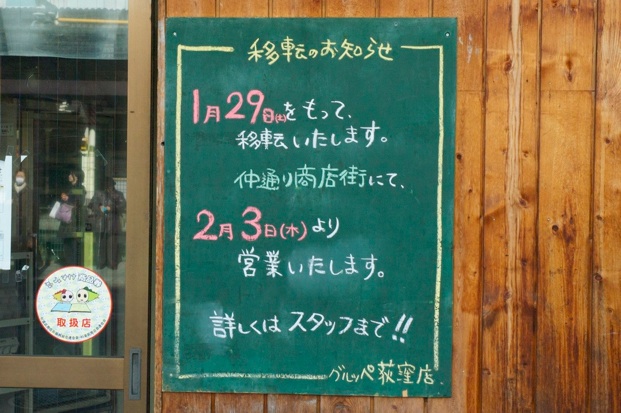 移転のお知らせ
1月29日(土)をもって、
移転いたします。
仲通り商店街にて、
2月3日(木)より
営業いたします。
詳しくは スタッフまで!!
グルッペ荻窪店
取扱店